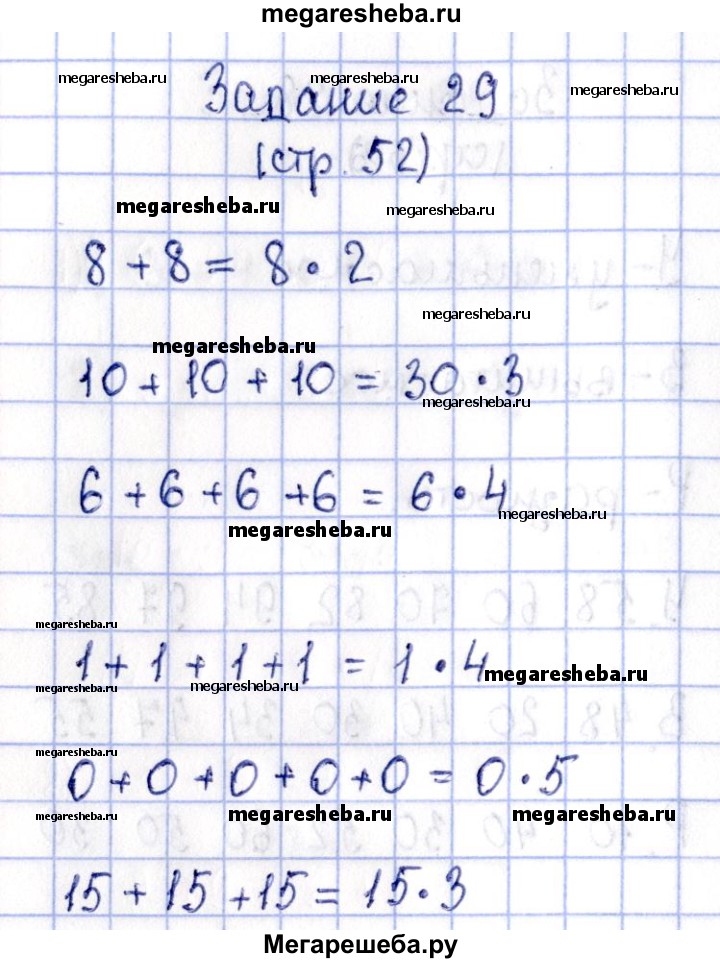 megaresheba.ru
megaresheba.ru megaresheba.ru megaresheba.ru
Задание 29
(стр. 52)
megaresheba.ru megaresheba.ru
8 + 8 = 8 · 2
megaresheba.ru
megaresheba.ru
10 + 10 + 10 = 30 · 3
megaresheba.ru
6 + 6 + 6 + 6 = 6 · 4
megaresheba.ru
megaresheba.ru
megaresheba.ru
1 + 1 + 1 + 1 = 1 · 4
megaresheba.ru
megaresheba.ru megaresheba.ru
megaresheba.ru
0 + 0 + 0 + 0 + 0 = 0 · 5
megaresheba.ru megaresheba.ru megaresheba.ru
15 + 15 + 15 = 15 · 3
Мегарешеба.ру